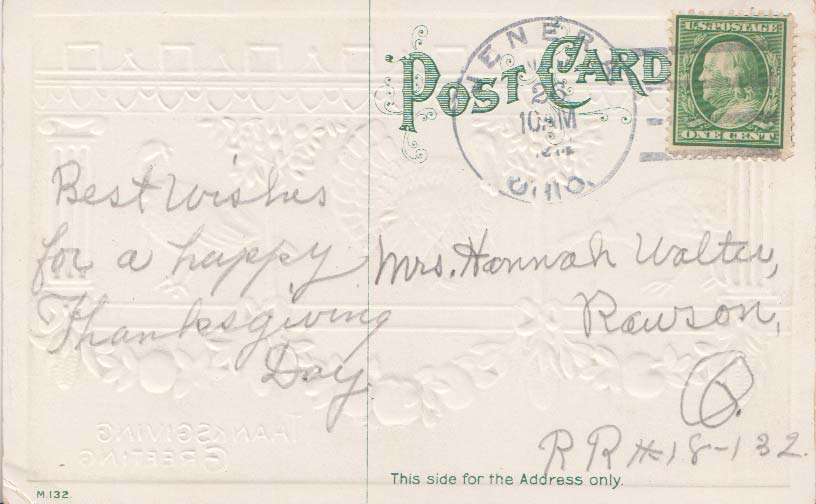 POST CARD
U.S. POSTAGE
ONE CENT
JENERA
23
10 AM
OHIO.
Best Wishes
for a happy
Thanksgiving
Day.
Mrs. Hannah Walter,
Rawson,
O.
RR #18-132.
THANKSGIVING
GREETING
This side for the Address only.
M.132.